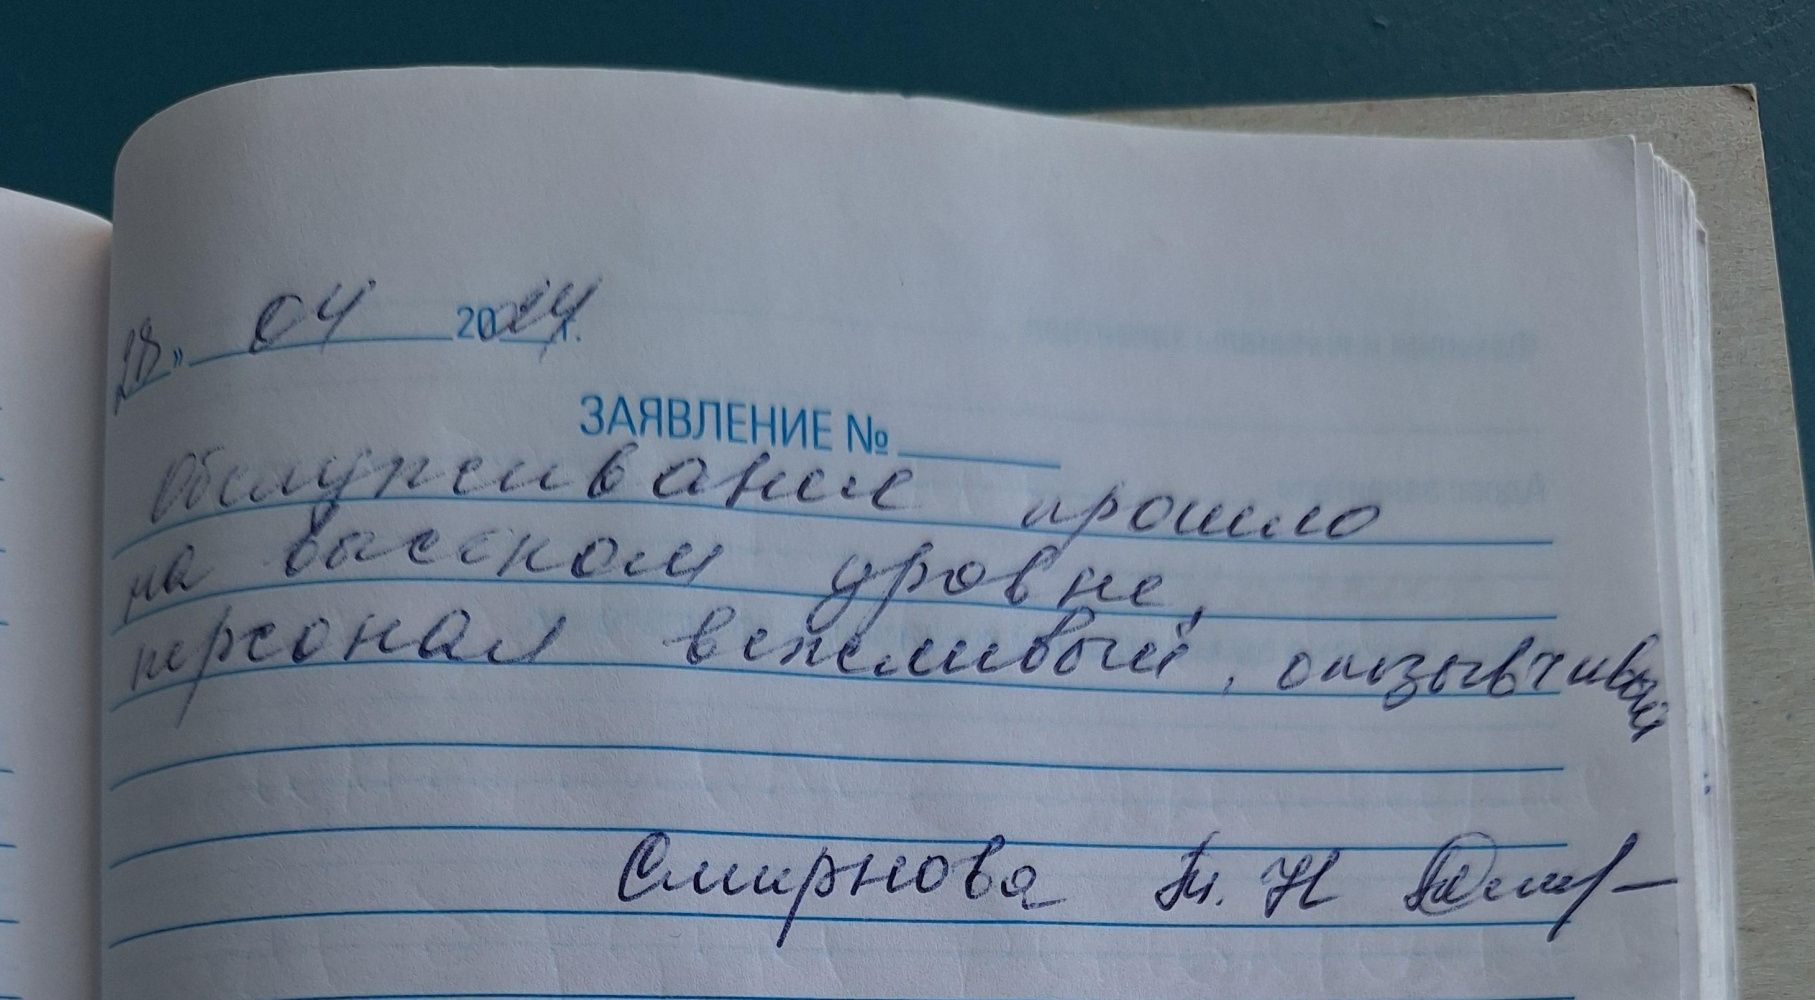 28» 04 2024 г.
ЗАЯВЛЕНИЕ №
Обслуживание прошло
на высоком уровне,
персонал вежливый, отзывчивый
Смирнова Т. Н